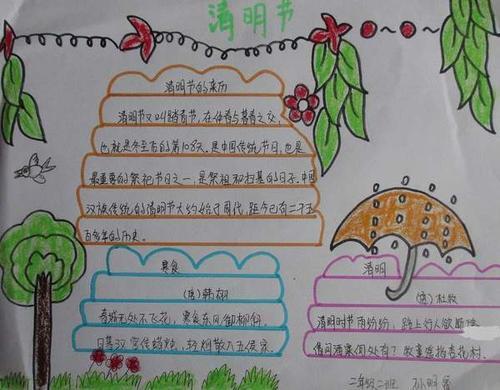 清明节
清明节的来历
清明节又叫踏青节,在仲春与暮春之交,
也就是冬至后的第108天。是中国传统节日,也是
最重要的祭祀节日之一,是祭祖和扫墓的日子。中国
汉族传统的清明节大约始于周代,距今已有二千五
百多年的历史。
寒食
(唐)韩翃
春城无处不飞花,寒食东风御柳斜。
日暮汉宫传蜡烛,轻烟散入五侯家。
清明
(唐)杜牧
清明时节雨纷纷,路上行人欲断魂
借问酒家何处有?牧童遥指杏花村。
二年级二班 孙明